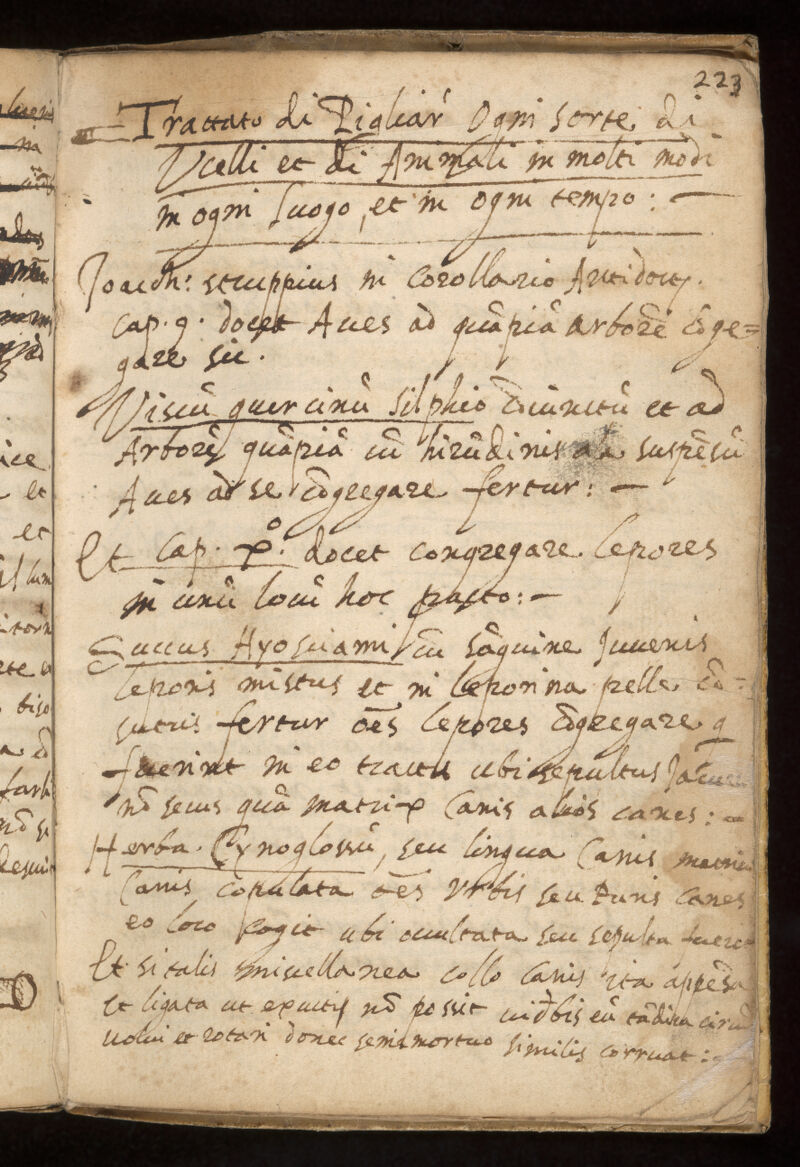 223
Trattato di Pigliar' Ogni sorte di
Vcelli et di Animali in molti modi
in ogni luogo, et in ogni tempo: —
Joach: struppius in Corollario Antidot.
cap. 9. docet Aues ad quãpiã arborẽ cõge=
gare sic.
Viscũ quercinũ silphio cõiunctũ et ad
Arborẽ quãpiã cũ hirũdinis ala suspẽsũ
Aues ad se cõgregare fertur: —
Et Cap. x.º docet congregare lepores
in unũ locũ hoc pacto: —
Succus Hyosciami cũ sãguine Juuenis
leporis mistus et in leporina pelle cõ=
sutus fertur oẽs lepores cõgregare q
fuerint in eo tractu ubi sepultus
nõ secus quã matrix Canis alios canes: —
Herba Cynoglossũ, seu lingua Canis
Canis copulata oẽs Vrbis seu Ruris canes
eo loco cogit ubi occultata seu sepulta
Et si talis miscellanea collo Canis ita appẽsa
et ligata ut excutj nõ possit uidebis eũ tãdiu
uolui et rotari donec semimortuo similis corruat: —
ice
et
et